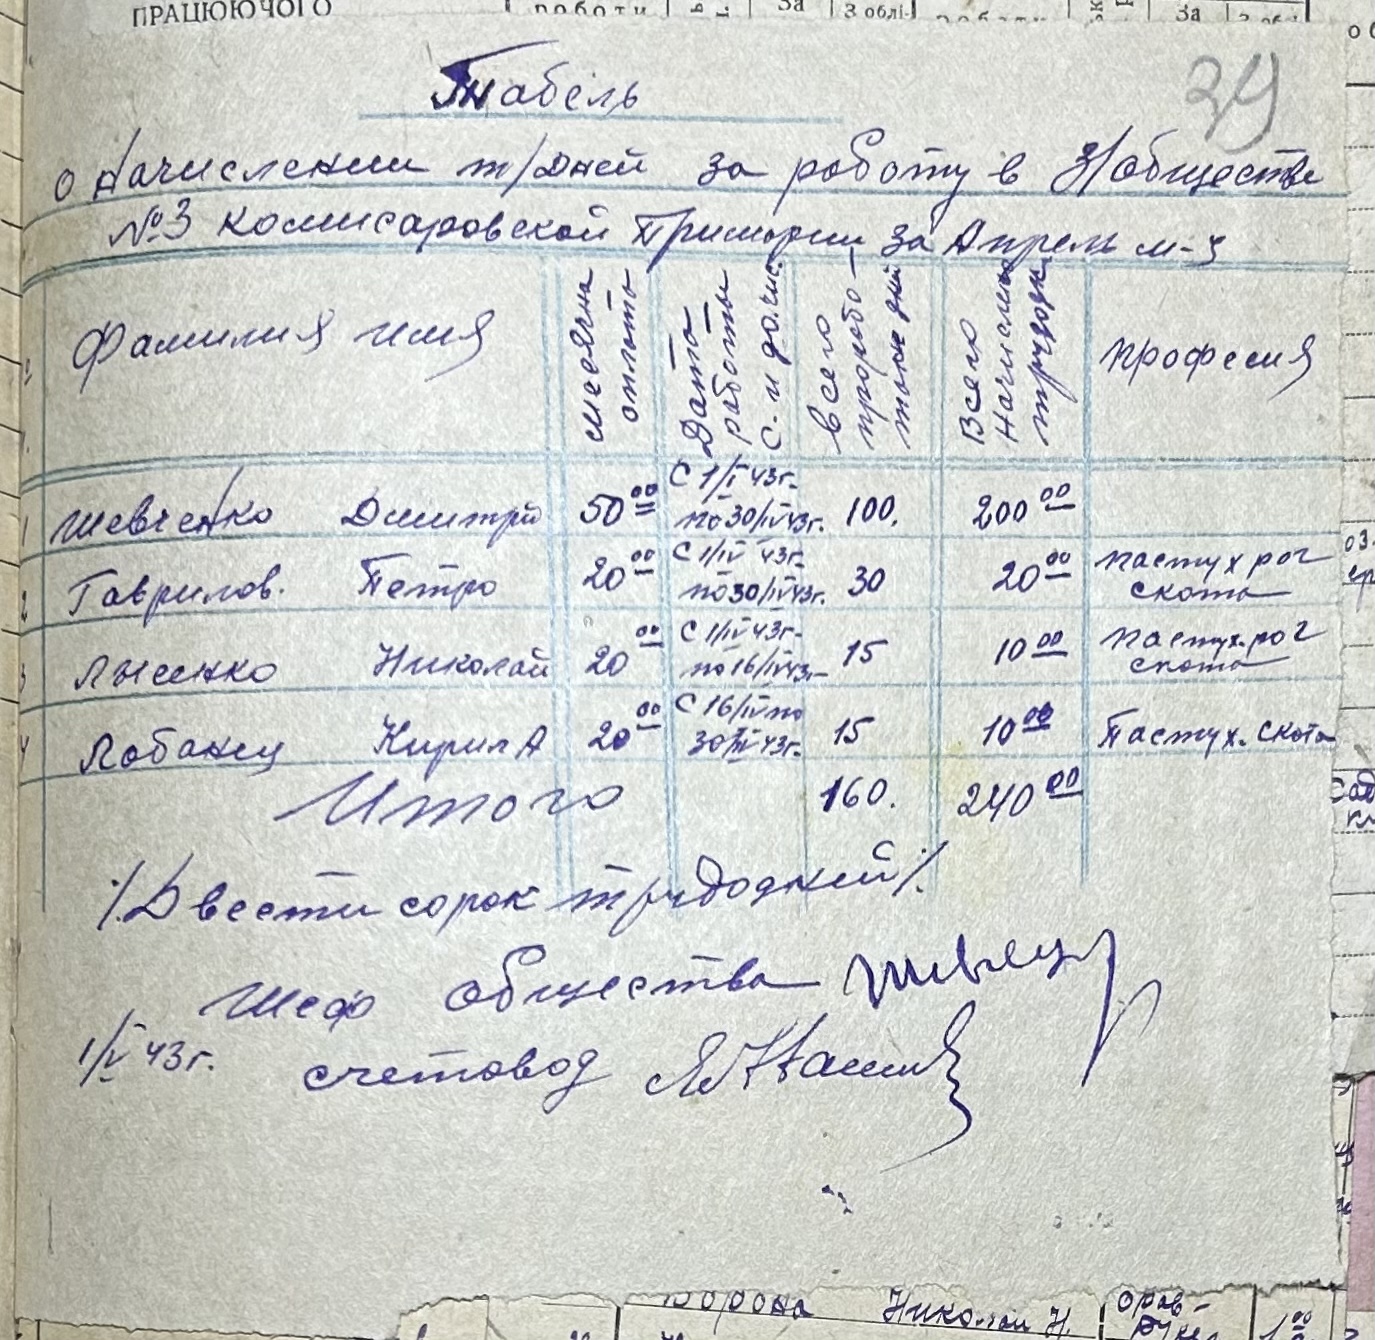 ПРАЦЮЮЧОГО За З облі- За
39
Табель
о Начислении т/дней за роботу в З/обществе
№3 Комисаровской за Апрель м-ц
Фамилия имя Месячна оплата Дата работы с - и до чис. Всего проработо- дни Всего Начислено трудодн. професия
1 Шевченко Дмитрий 50 00 С 1/IV 43г. по 30/IV 43г. 100. 200 00
2 Гаврилов. Петро 20 00 С 1/IV 43г. по 30/IV 43г. 30 20 00 пастух рог скота
3 Лысенко Николай 20 00 С 1/IV 43г. по 16/IV 43г. 15 10 00 пастух. рог скота
4 Лобанец Кирил А 20 00 С 16/IV по 30/IV 43г. 15 10 00 Пастух. скота
Итого 160. 240 00
/. Двести сорок трудодней /.
Шеф общества Швец
1/V 43г. счетовод
Николай Н. 1 00